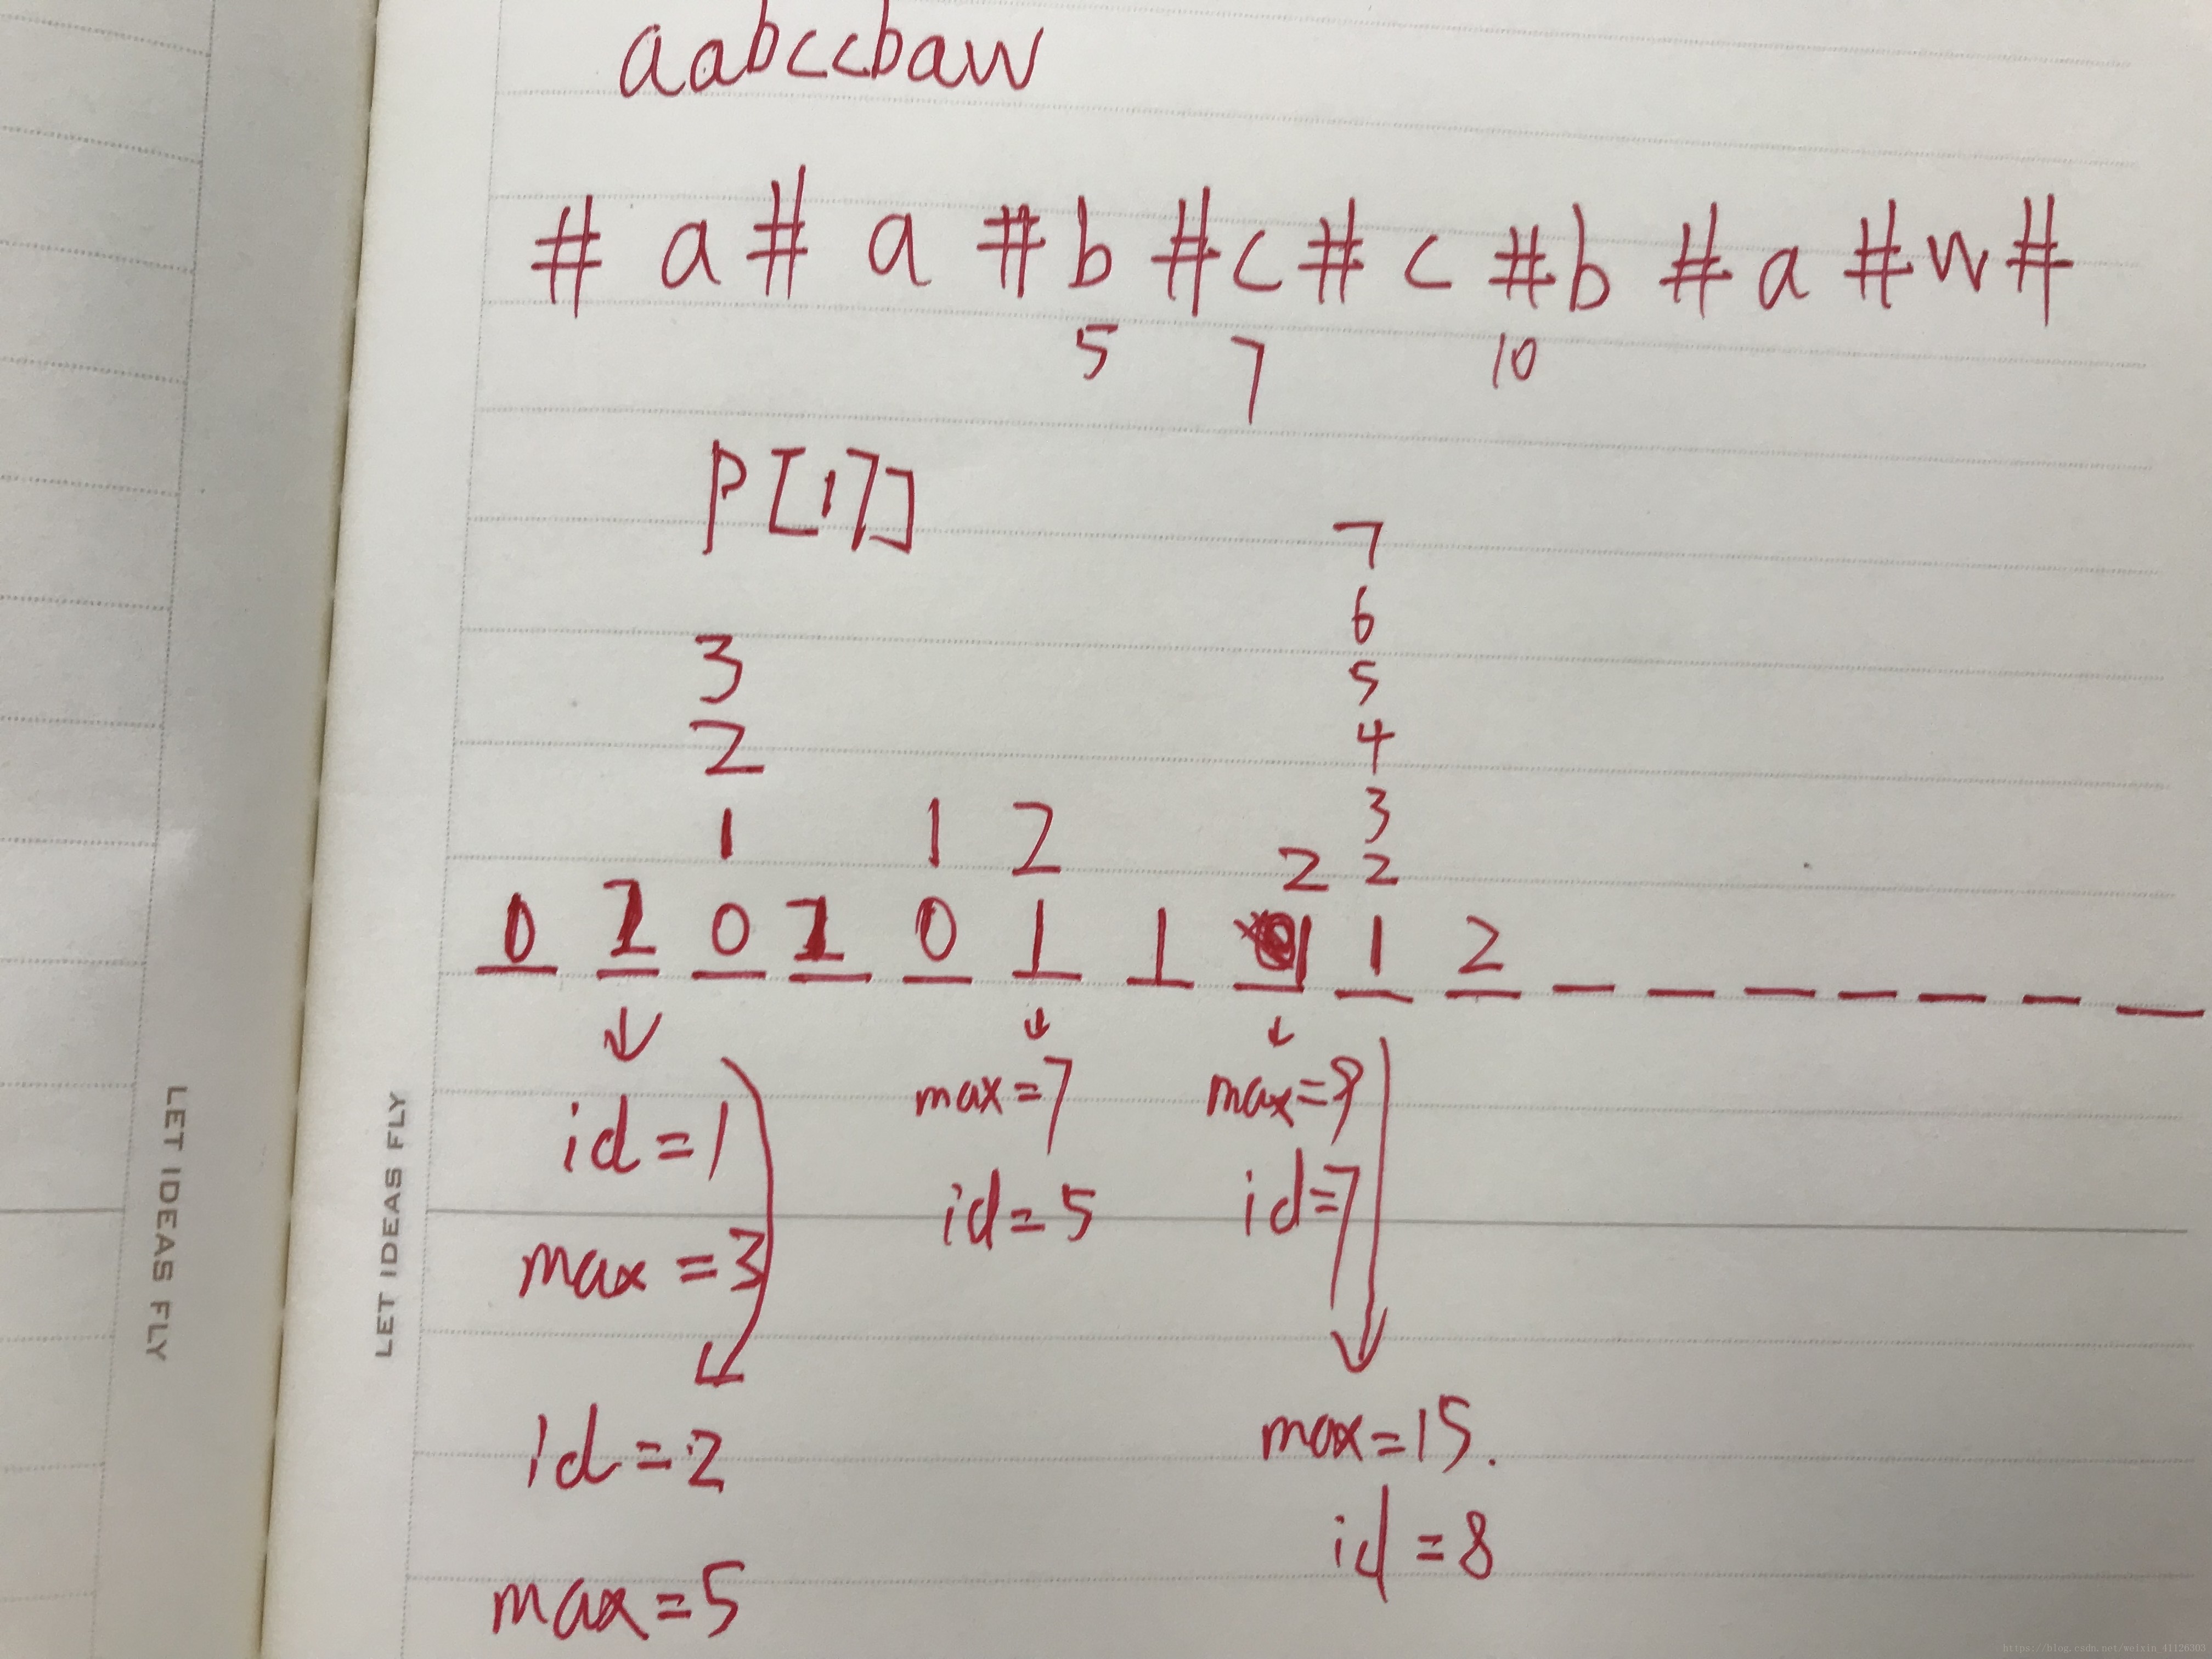 LET IDEAS FLY
LET IDEAS FLY
aabccbaw
# a # a # b # c # c # b # a # w #
5 7 10
p[i]
7
3 6
2 5
4
1 1 2 3
2 2
0 1 0 1 0 1 1 1 1 2
id=1 max=7 max=8
max=3 id=5 id=7
id=2 max=15.
max=5 id=8